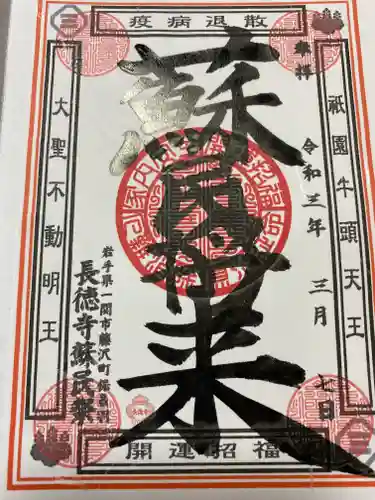 疫病退散
奉拝
令和三年 三月 七日
祇園牛頭天王
蘇民将来
大聖不動明王
岩手県一関市藤沢町
長徳寺蘇民祭
開運招福